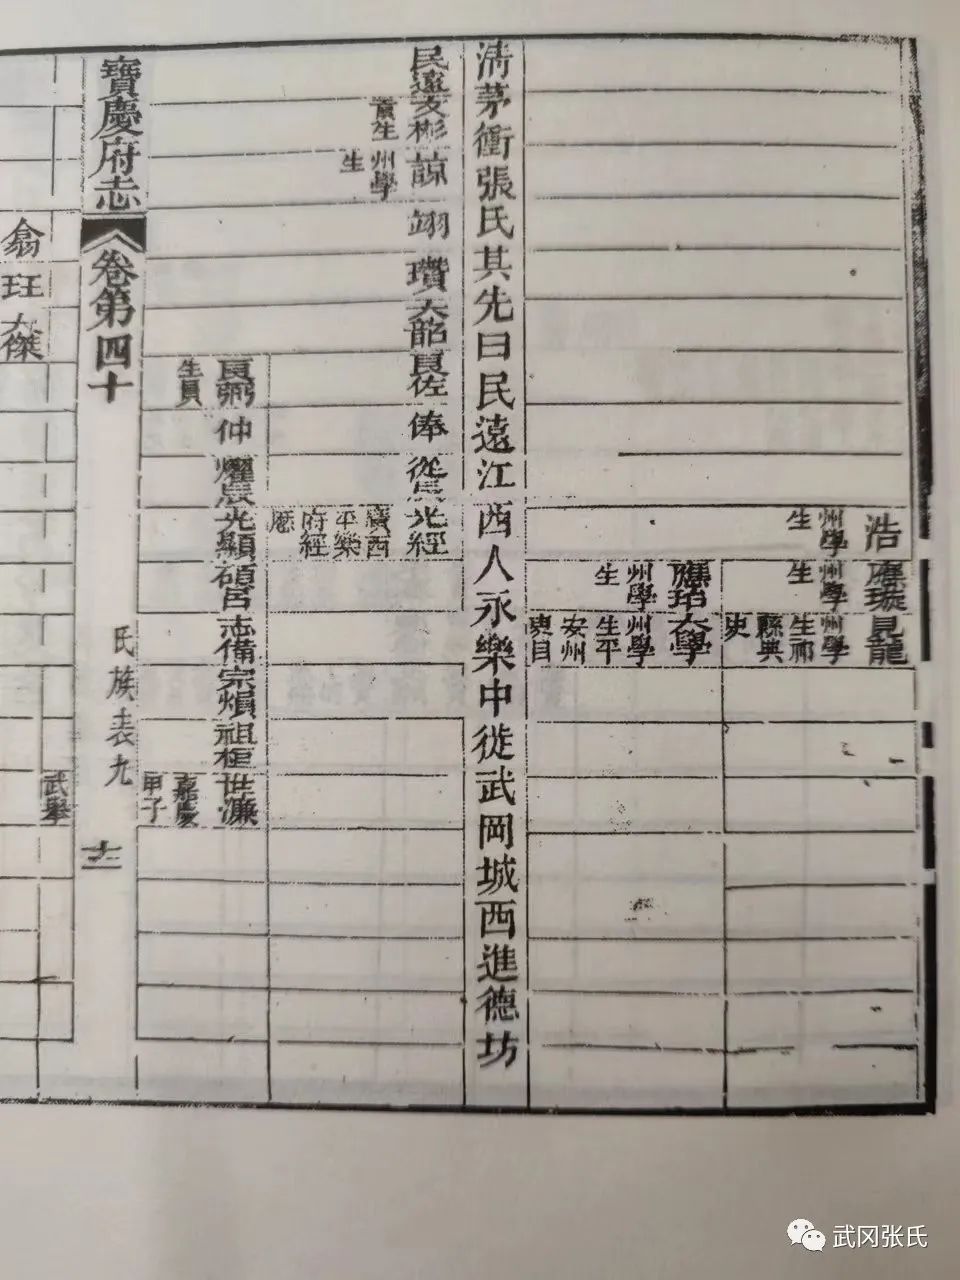 浩 州學生
應璇 州學生
見龍 州學生祁縣典史
應珆 州學生
大學 州學生平安州吏目
清茅衝張氏其先曰民遠江西人永樂中從武岡城西進德坊
民遠
文彬
諒 州學生
翊
瓚
天韶
良佐
俸
從辰
光經 廣西平樂府經歷
良弼 生員
仲
燿辰
光顯
碩宮
志備
宗熉
祖柜
世濂 嘉慶甲子
武舉
寶慶府志
卷第四十
氏族表九
十二
翕
玨
大傑
武冈张氏